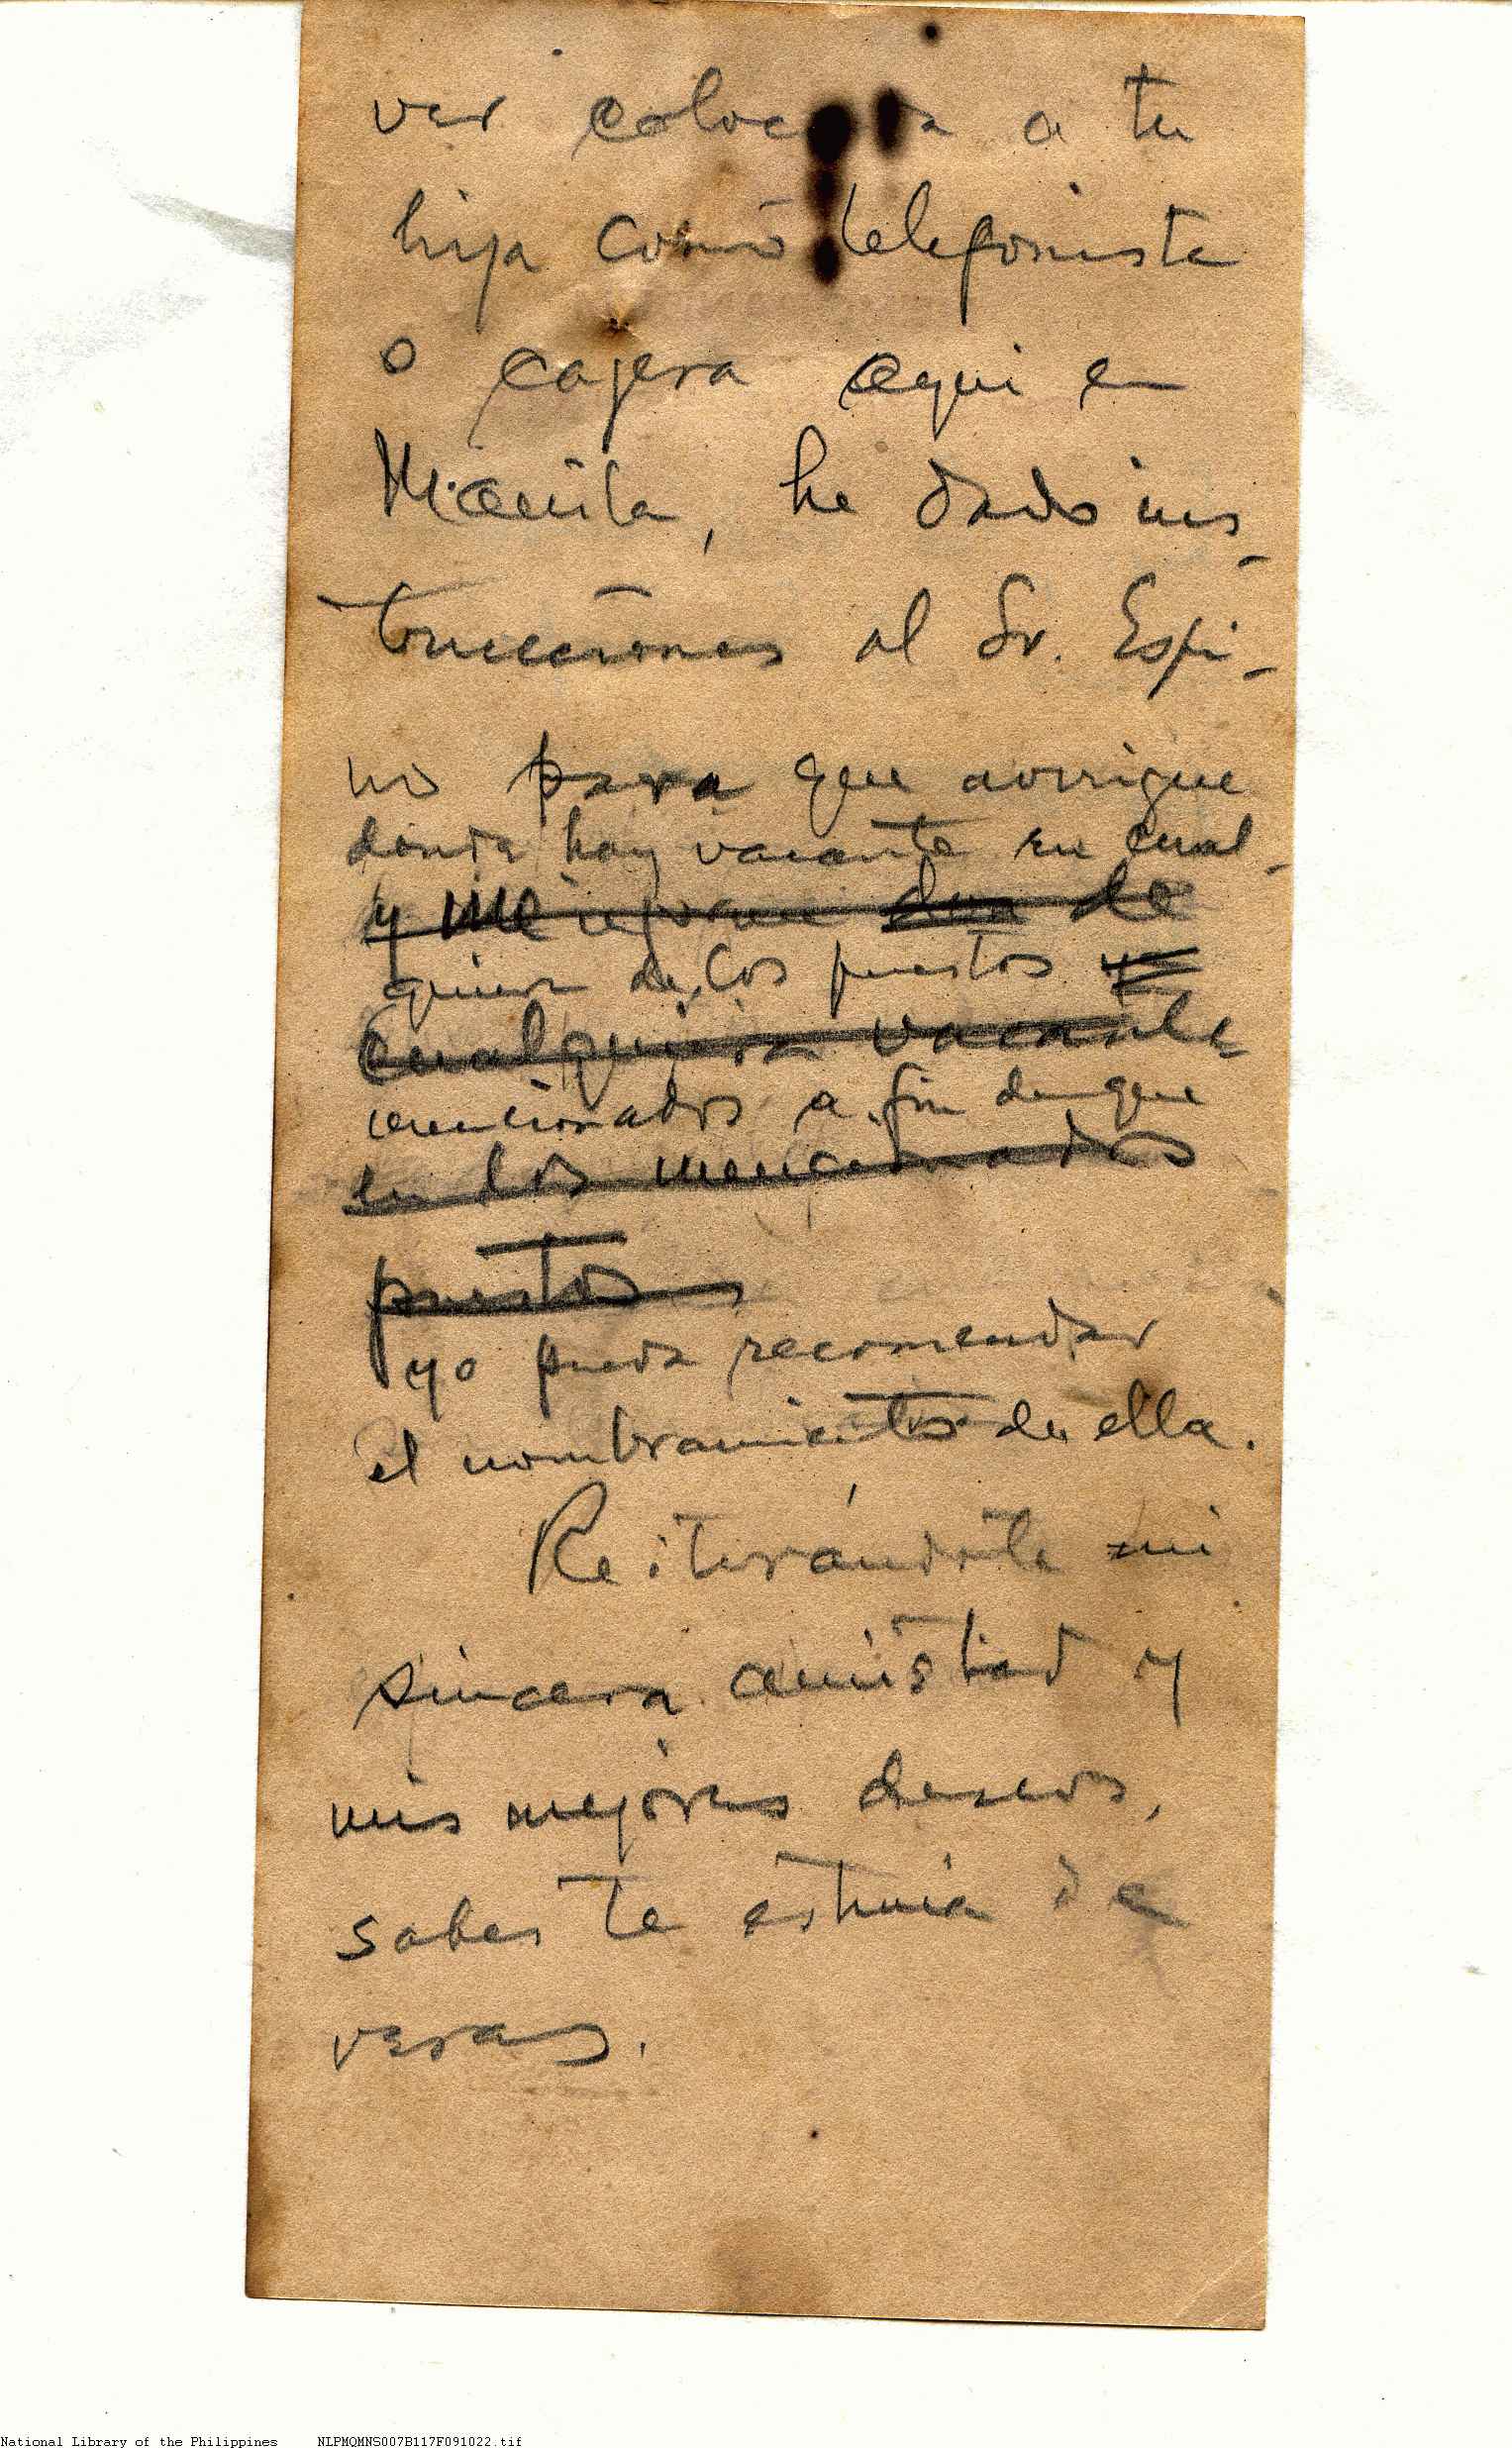 ver colocada a tu
hija como telefonista
o cajera aqui en
Manila, he dado ins-
trucciones al Sr. Espi-
no para que averigue
donde hay vacante en cual-
y me informe de
quiera de los puestos
cualquiera vacante
mencionados a fin de que
en los mencionados
puestos
yo pueda recomendar
el nombramiento de ella.
Reiterándote mi
sincera amistad y
mis mejores deseos,
sabes te estima de
veras.
National Library of the Philippines NLPMQMNS007B117F091022.tif